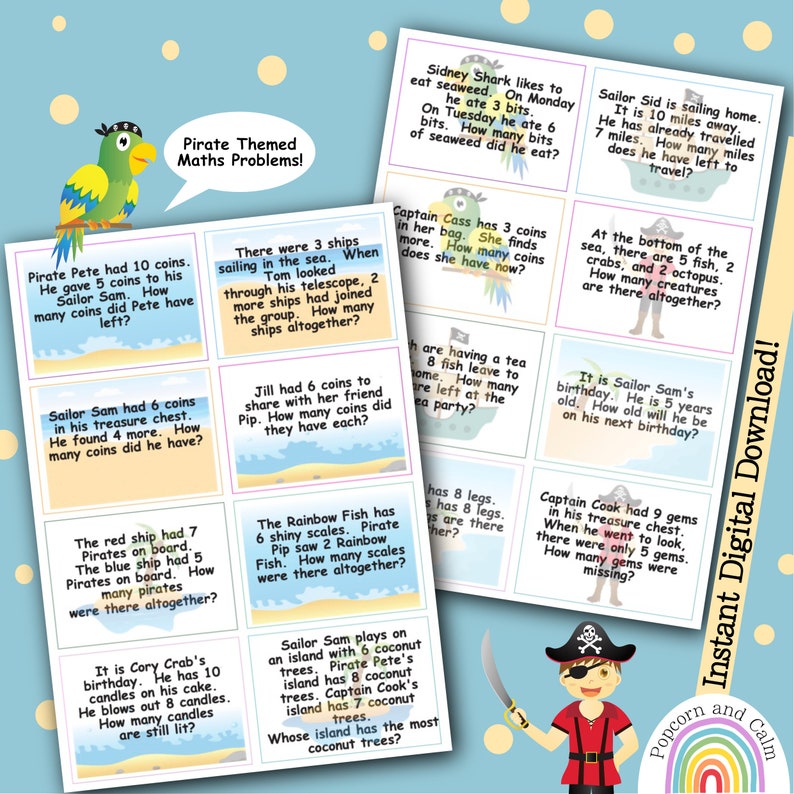 Pirate Themed
Maths Problems!
Pirate Pete had 10 coins.
He gave 5 coins to his
Sailor Sam. How
many coins did Pete have
left?
There were 3 ships
sailing in the sea. When
Tom looked
through his telescope, 2
more ships had joined
the group. How many
ships altogether?
Sailor Sam had 6 coins
in his treasure chest.
He found 4 more. How
many coins did he have?
Jill had 6 coins to
share with her friend
Pip. How many coins did
they have each?
The red ship had 7
Pirates on board.
The blue ship had 5
Pirates on board. How
many pirates
were there altogether?
The Rainbow Fish has
6 shiny scales. Pirate
Pip saw 2 Rainbow
Fish. How many scales
were there altogether?
It is Cory Crab's
birthday. He has 10
candles on his cake.
He blows out 8 candles.
How many candles
are still lit?
Sailor Sam plays on
an island with 6 coconut
trees. Pirate Pete's
island has 8 coconut
trees. Captain Cook's
island has 7 coconut
trees.
Whose island has the most
coconut trees?
Sidney Shark likes to
eat seaweed. On Monday
he ate 3 bits.
On Tuesday he ate 6
bits. How many bits
of seaweed did he eat?
Sailor Sid is sailing home.
It is 10 miles away.
He has already travelled
7 miles. How many miles
does he have left to
travel?
Captain Cass has 3 coins
in her bag. She finds
more. How many coins
does she have now?
At the bottom of the
sea, there are 5 fish, 2
crabs, and 2 octopus.
How many creatures
are there altogether?
are having a tea
8 fish leave to
home. How many
are left at the
tea party?
It is Sailor Sam's
birthday. He is 5 years
old. How old will he be
on his next birthday?
has 8 legs.
has 8 legs.
are there
Captain Cook had 9 gems
in his treasure chest.
When he went to look,
there were only 5 gems.
How many gems were
missing?
Instant Digital Download!
Popcorn and Calm